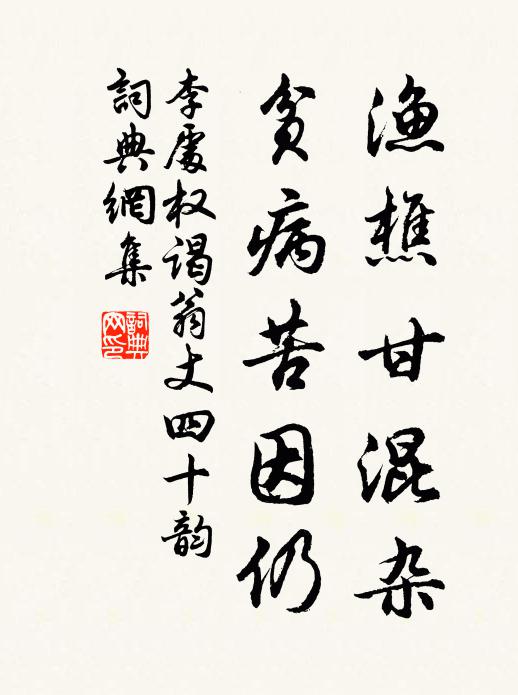 渔樵甘混杂
贫病苦因仍
李處权谒翁丈四十韵
詞典網集
詞典网印